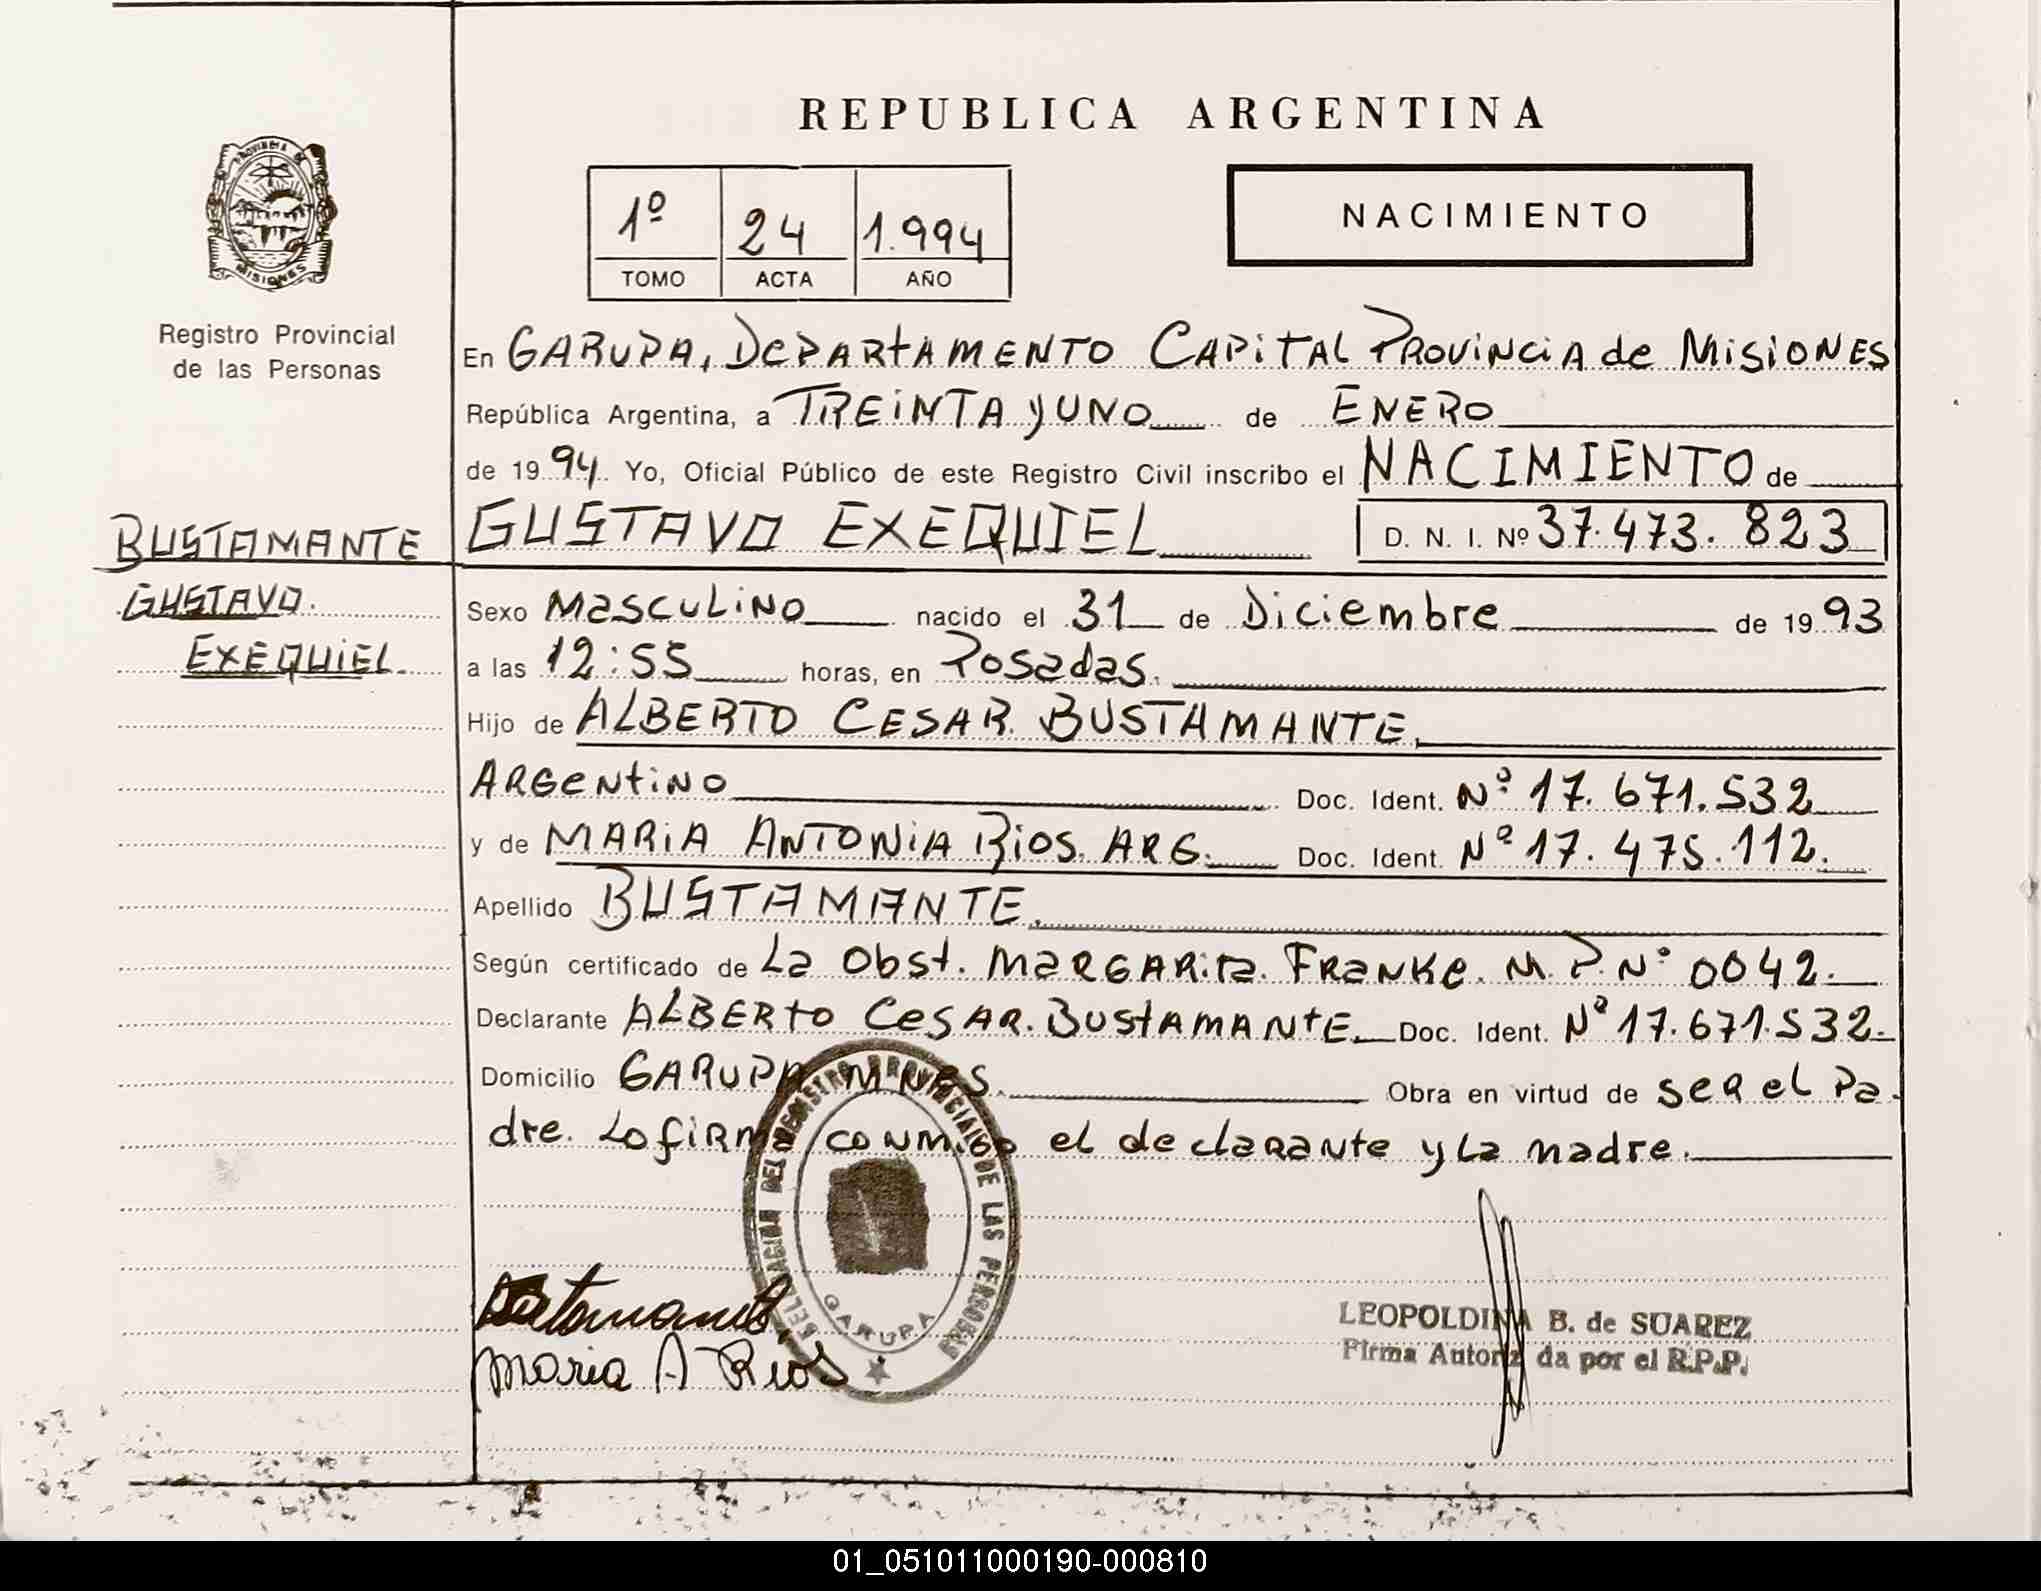 REPUBLICA ARGENTINA
PROVINCIA DE
MISIONES
Registro Provincial
de las Personas
1º 24 1.994
TOMO ACTA AÑO
NACIMIENTO
En GARUPA, DEPARtAMENTO CAPiTAL PROViNCiA de MiSiONES
República Argentina, a TREiNTA y UNO de ENERO
de 19 94. Yo, Oficial Público de este Registro Civil inscribo el NACIMIENTO de
GUSTAVO EXEQUIEL D. N. I. Nº 37.473.823
BUSTAMANTE
GUSTAVO.
EXEQUIEL.
Sexo MASCULiNO nacido el 31 de Diciembre de 19 93
a las 12:55 horas, en Posadas.
Hijo de ALBERTO CESAR. BUSTAMANTE.
ARGeNtiNO Doc. Ident. Nº 17.671.532
y de MARiA ANTONiA RiOS. ARG. Doc. Ident. Nº 17.475.112.
Apellido BUSTAMANTE.
Según certificado de La Obst. MARGARiTa. FRaNKe. M.P. Nº 0042.
Declarante ALBERtO CeSAR. BUStAMANtE. Doc. Ident. Nº 17.671.532.
Domicilio GARUPA MNES. Obra en virtud de seR el Pa-
dre. Lo fiRma conmigo el declaRaNte y La madre.
DELEGACION DEL REGISTRO PROVINCIAL DE LAS PERSONAS
GARUPA
Bustamante
Maria A Rios
LEOPOLDINA B. de SUAREZ
Firma Autorizada por el R.P.P.
01_051011000190-000810